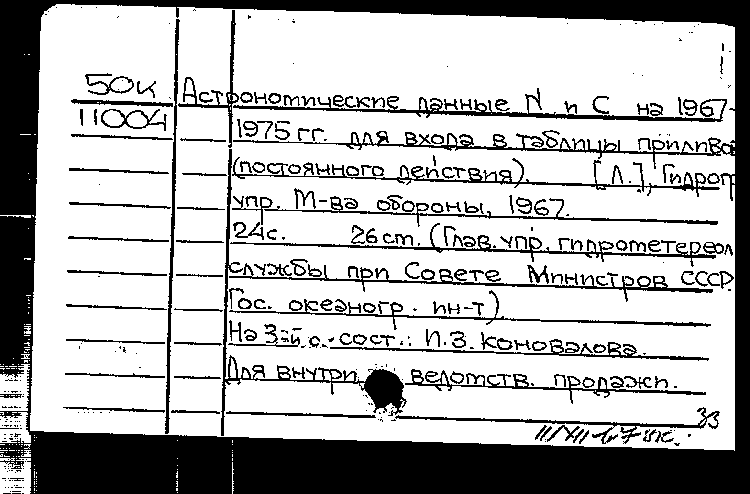 50к Астрономические данные N и С на 1967-
11004 1975 гг. для входа в таблицы приливов
(постоянного действия). [Л.], Гидрогр
упр. М-ва обороны, 1967.
24с. 26 см. (Глав. упр. гидрометереол
службы при Совете Министров СССР.
Гос. океаногр. ин-т).
На 3-й с. сост.: И.З. Коновалова.
Для внутри ведомств. продажи.
33